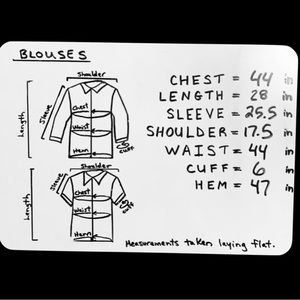 BLOUSES
Shoulder
Sleeve
Length
Chest
Waist
Hem
Cuff
Shoulder
Sleeve
Length
Chest
Waist
Hem
Cuff
CHEST = 44 in
LENGTH = 28 in
SLEEVE = 25.5 in
SHOULDER = 17.5 in
WAIST = 44 in
CUFF = 6 in
HEM = 47 in
Measurements taken laying flat.